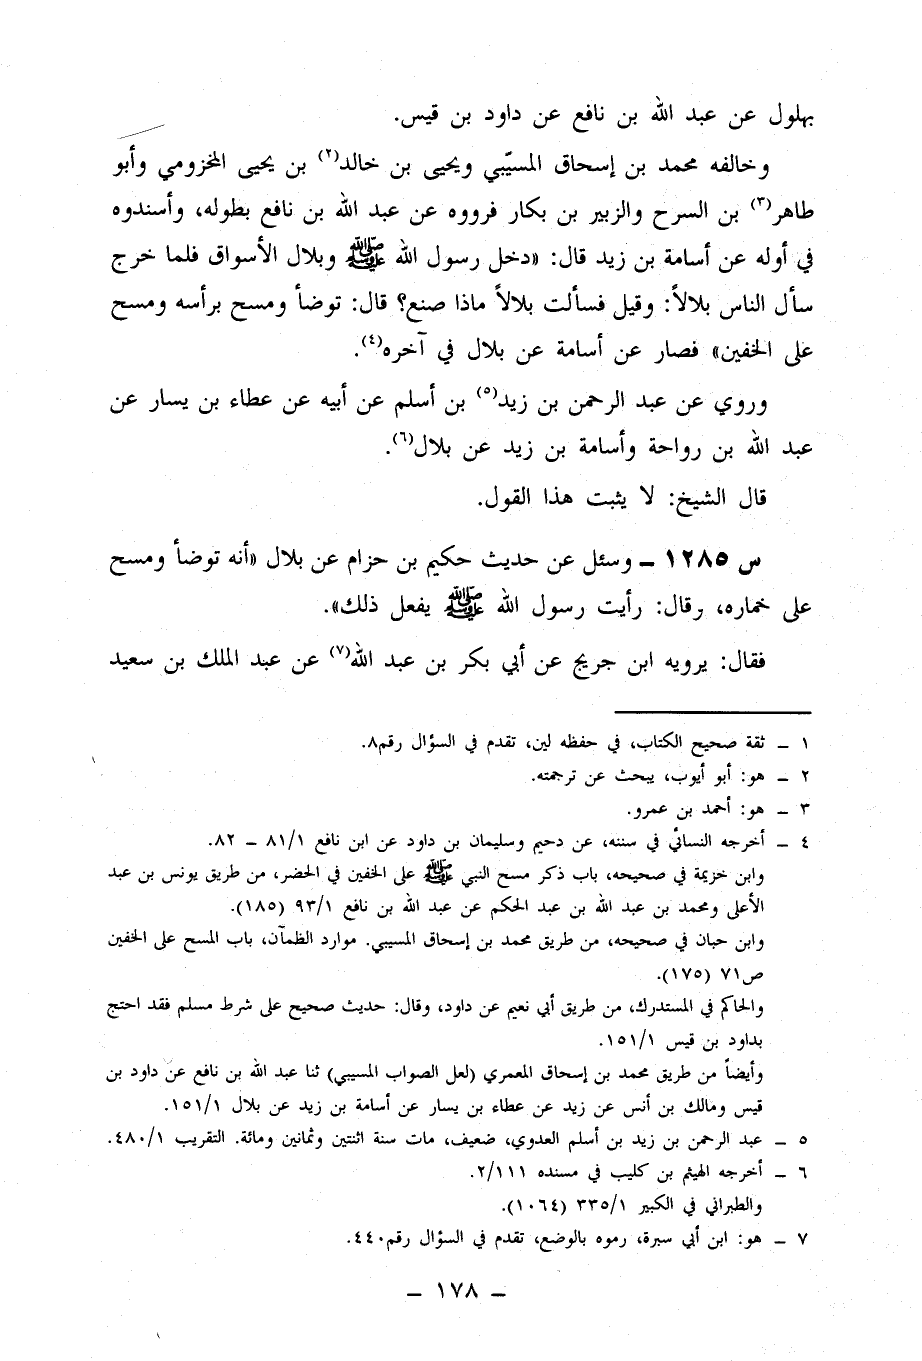 بهلول عن عبد الله بن نافع عن داود بن قيس.
وخالفه محمد بن إسحاق المسيّبي ويحيى بن خالد(٢) بن يحيى المخزومي وأبو
طاهر(٣) بن السرح والزبير بن بكار فرووه عن عبد الله بن نافع بطوله، وأسندوه
في أوله عن أسامة بن زيد قال: «دخل رسول الله ﷺ وبلال الأسواق فلما خرج
سأل الناس بلالاً: وقيل فسألت بلالاً ماذا صنع؟ قال: توضأ ومسح برأسه ومسح
على الخفين» فصار عن أسامة عن بلال في آخره(٤).
وروي عن عبد الرحمن بن زيد(٥) بن أسلم عن أبيه عن عطاء بن يسار عن
عبد الله بن رواحة وأسامة بن زيد عن بلال(٦).
قال الشيخ: لا يثبت هذا القول.
س ١٢٨٥ ـ وسئل عن حديث حكيم بن حزام عن بلال «أنه توضأ ومسح
على خماره، وقال: رأيت رسول الله ﷺ يفعل ذلك».
فقال: يرويه ابن جريج عن أبي بكر بن عبد الله(٧) عن عبد الملك بن سعيد
١ ـ ثقة صحيح الكتاب، في حفظه لين، تقدم في السؤال رقم٨.
٢ ـ هو: أبو أيوب، يبحث عن ترجمته.
٣ ـ هو: أحمد بن عمرو.
٤ ـ أخرجه النسائي في سننه، عن دحيم وسليمان بن داود عن ابن نافع ٨١/١ ـ ٨٢.
وابن خزيمة في صحيحه، باب ذكر مسح النبي ﷺ على الخفين في الحضر، من طريق يونس بن عبد
الأعلى ومحمد بن عبد الله بن عبد الحكم عن عبد الله بن نافع ٩٣/١ (١٨٥).
وابن حبان في صحيحه، من طريق محمد بن إسحاق المسيبي. موارد الظمآن، باب المسح على الخفين
ص٧١ (١٧٥).
والحاكم في المستدرك، من طريق أبي نعيم عن داود، وقال: حديث صحيح على شرط مسلم فقد احتج
بداود بن قيس ١٥١/١.
وأيضاً من طريق محمد بن إسحاق المعمري (لعل الصواب المسيبي) ثنا عبد الله بن نافع عن داود بن
قيس ومالك بن أنس عن زيد عن عطاء بن يسار عن أسامة بن زيد عن بلال ١٥١/١.
٥ ـ عبد الرحمن بن زيد بن أسلم العدوي، ضعيف، مات سنة اثنتين وثمانين ومائة. التقريب ٤٨٠/١.
٦ ـ أخرجه الهيثم بن كليب في مسنده ٢/١١١.
والطبراني في الكبير ٣٣٥/١ (١٠٦٤).
٧ ـ هو: ابن أبي سبرة، رموه بالوضع، تقدم في السؤال رقم٤٤٠.
ـ ١٧٨ ـ